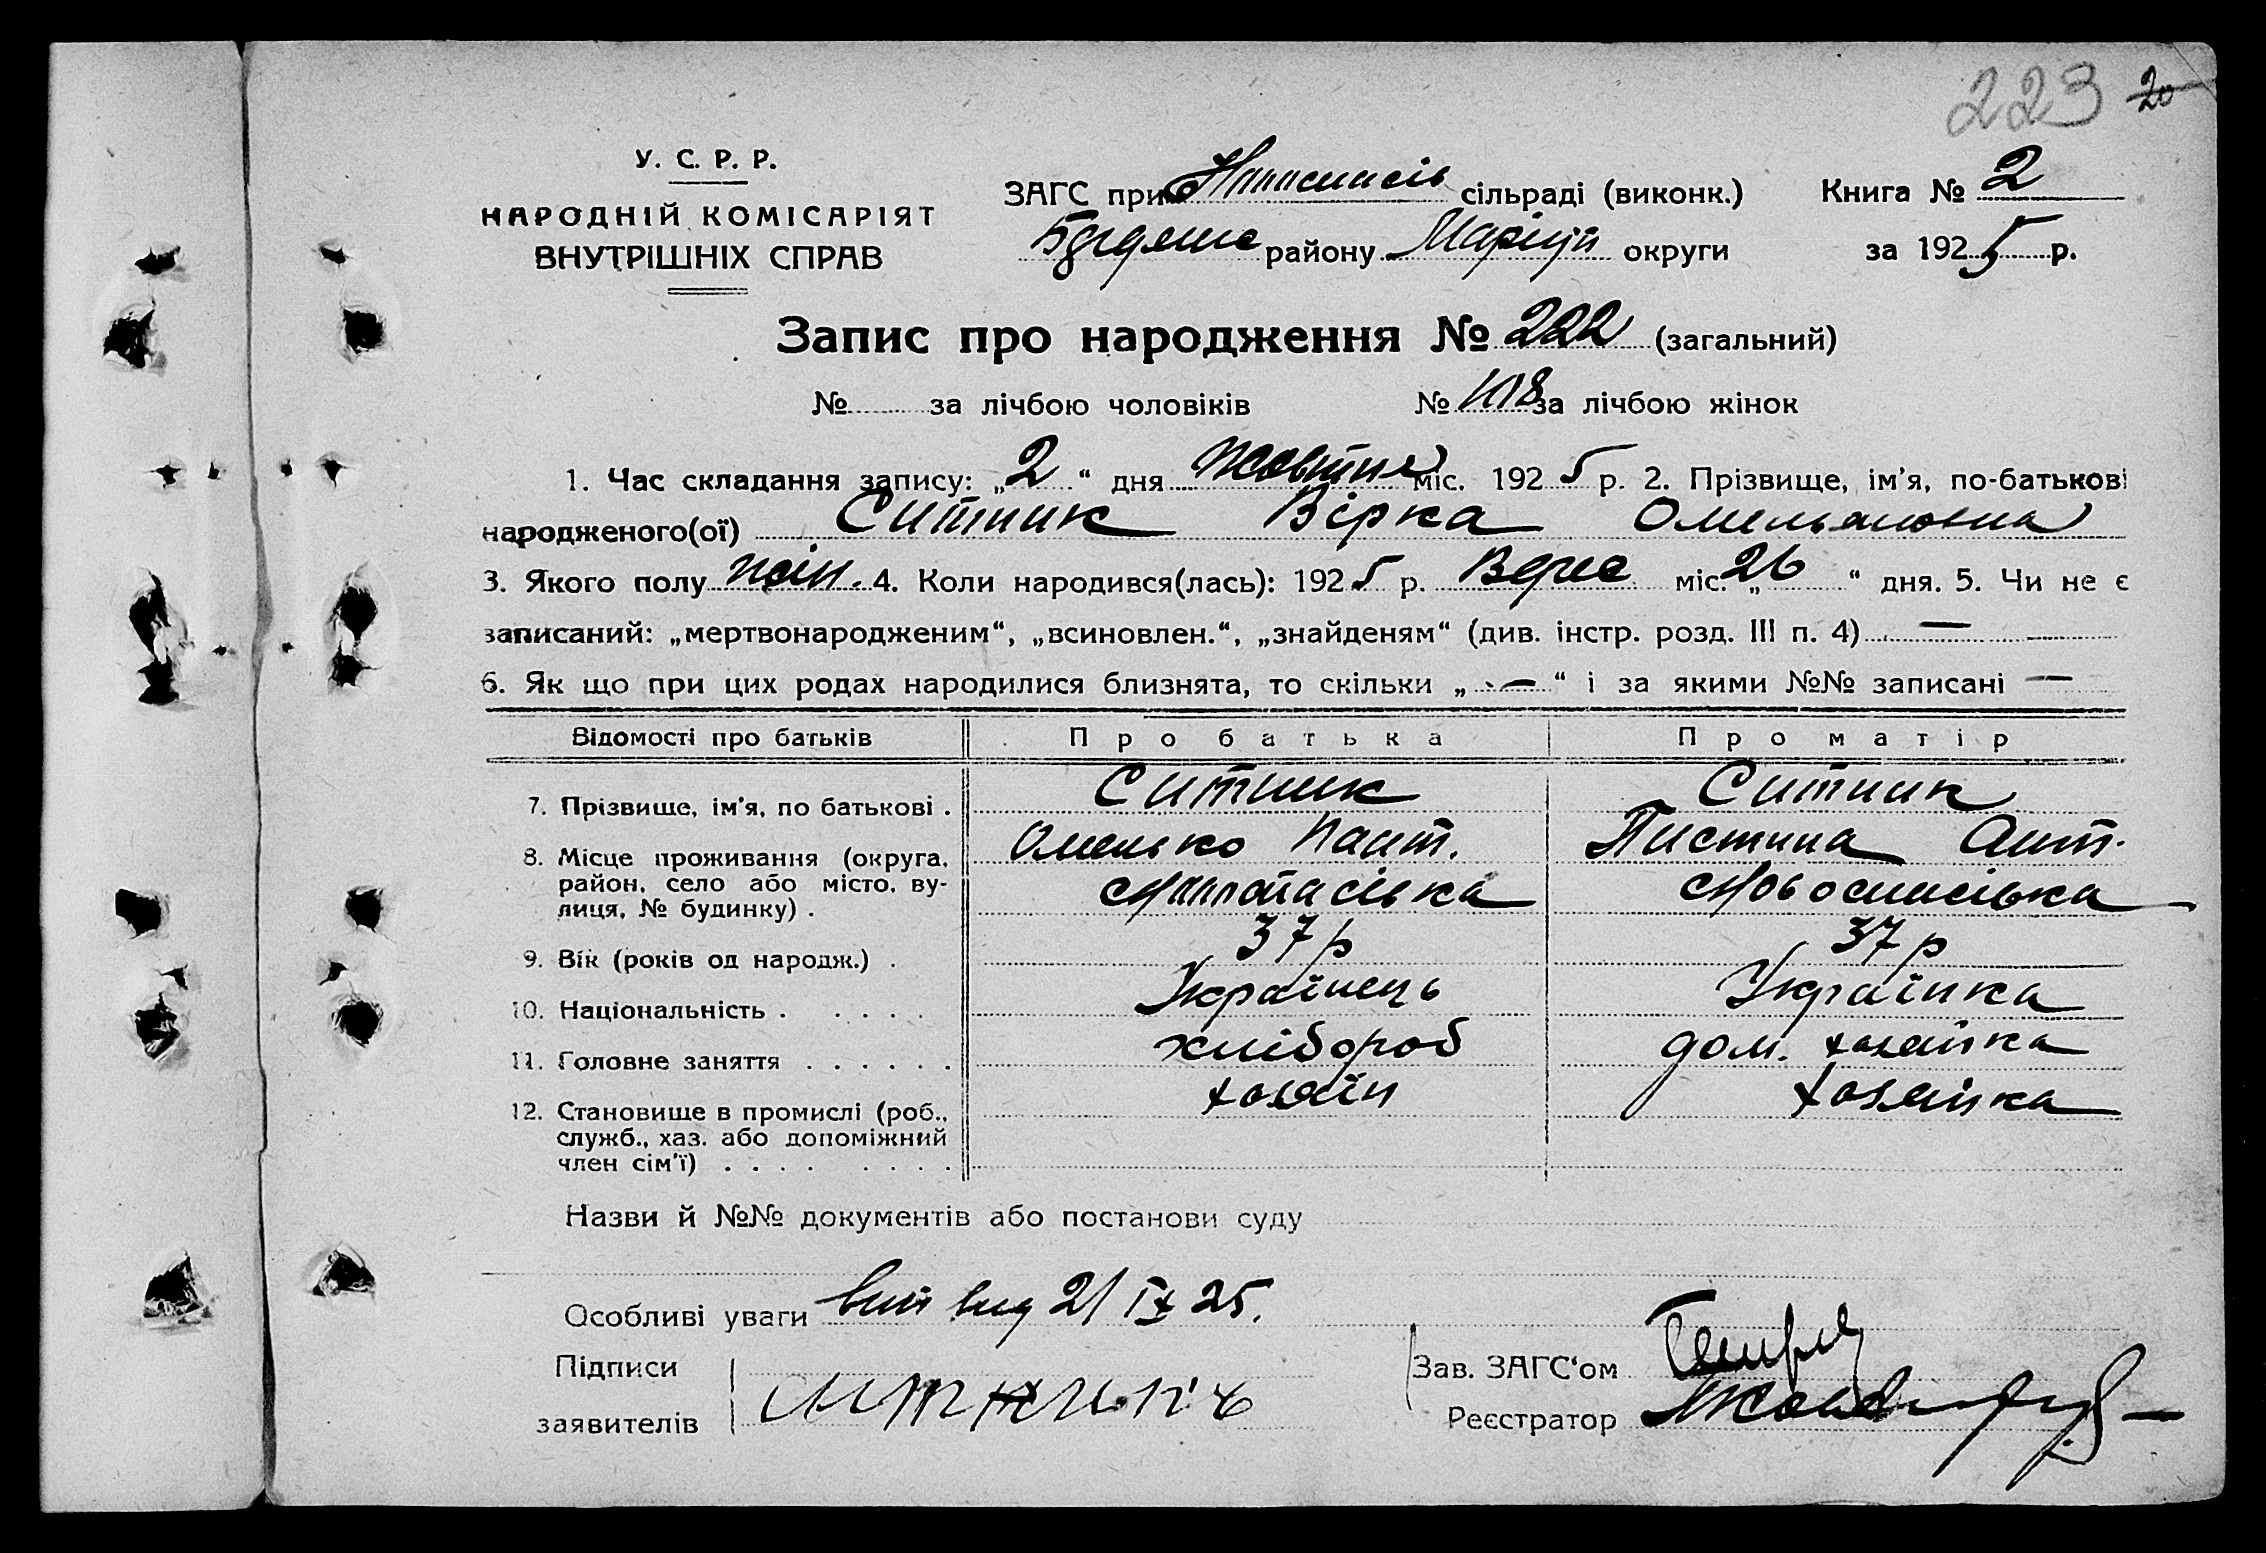 223 20
У. С. Р. Р.
НАРОДНІЙ КОМІСАРІЯТ
ВНУТРІШНІХ СПРАВ
ЗАГС при сільраді (виконк.) Книга № 2
району Маріуп округи за 1925 р.
Запис про народження № 222 (загальний)
№ за лічбою чоловіків № 108 за лічбою жінок
1. Час складання запису: „2“ дня Жовтня міс. 1925 р. 2. Прізвище, ім'я, по-батькові
народженого(ої) Ситник Вірка Омельяновна
3. Якого полу жін. 4. Коли народився(лась): 1925 р. Верес міс. „26“ дня. 5. Чи не є
записаний: „мертвонародженим“, „всиновлен.“, „знайденям“ (див. інстр. розд. III п. 4) —
6. Як що при цих родах народилися близнята, то скільки „—“ і за якими №№ записані —
Відомості про батьків Про батька Про матір
7. Прізвище, ім'я, по батькові . Ситник Ситник
Омелько Пант. Пистина Ант.
8. Місце проживання (округа,
район, село або місто, ву-
лиця, № будинку) . Новоспасівка
9. Вік (років од народж.) . 37 р 37 р
10. Національність . . . . . Українець Українка
11. Головне заняття . . . . . . хлібороб дом. хазяйка
12. Становище в промислі (роб.,
служб., хаз. або допоміжний
член сім'ї) . . . . . . . . хазяїн хазяйка
Назви й №№ документів або постанови суду
Особливі уваги 2/IX 25.
Підписи
заявителів
Зав. ЗАГС'ом
Реєстратор